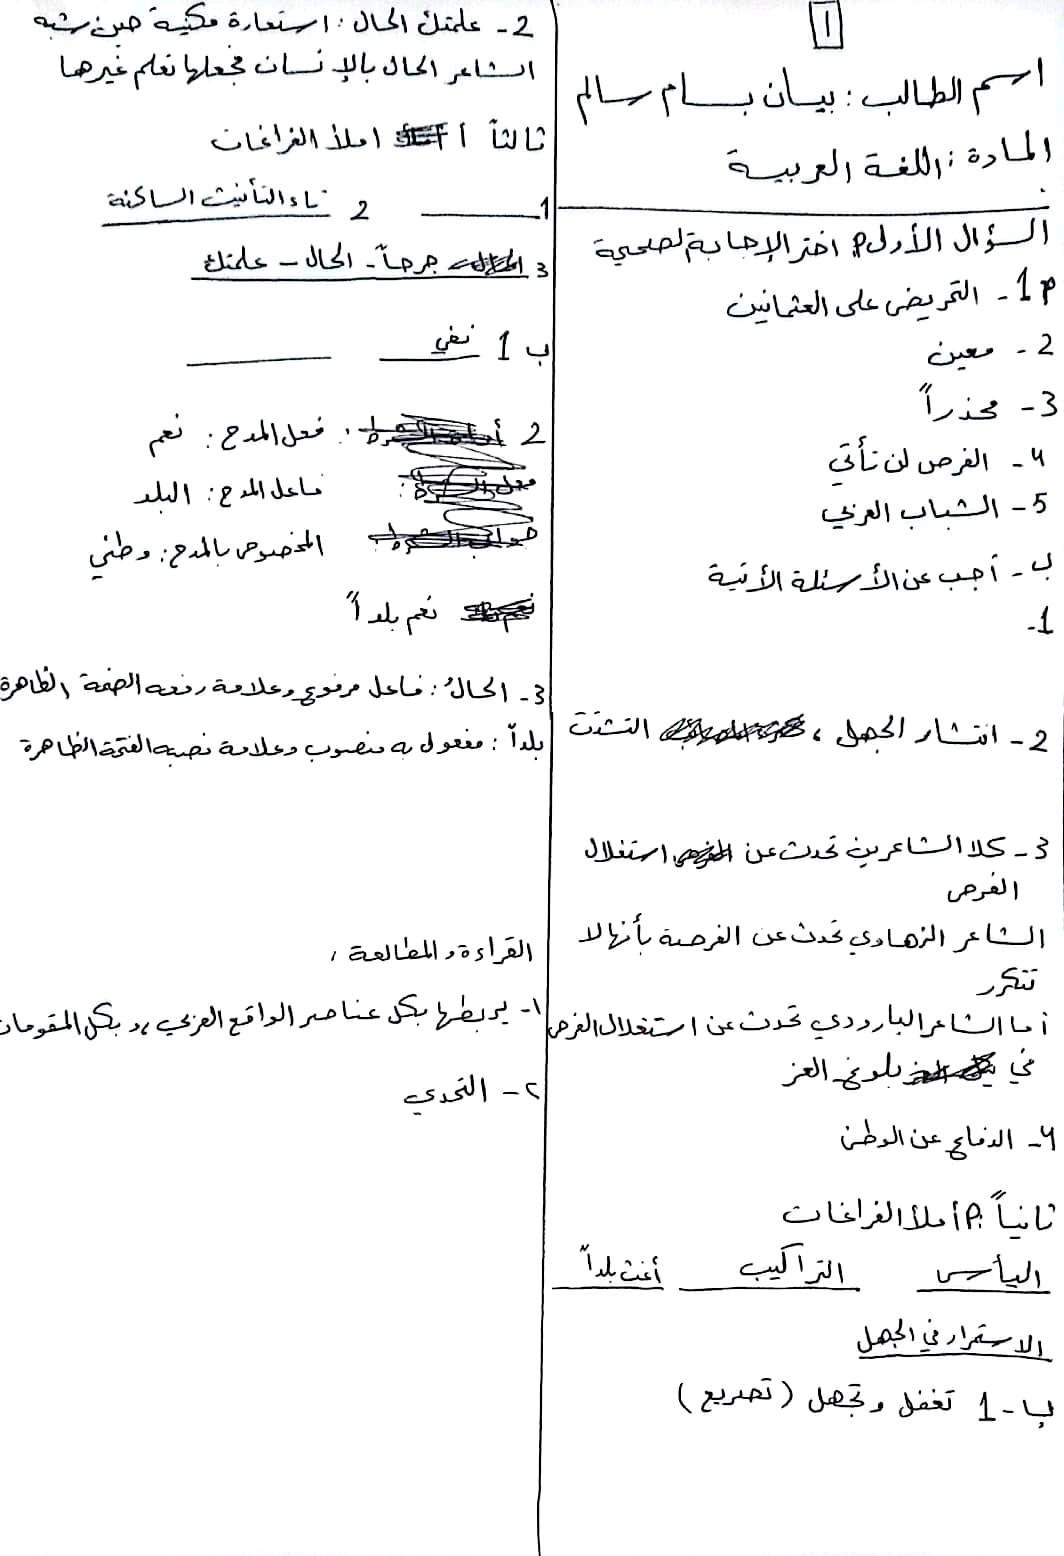 1
اسم الطالب : بيان بسام سالم
المادة : اللغة العربية
السؤال الأول P اختر الإجابة لصحيحية
1P - التحريض على العثمانين
2 - معين
3 - محذراً
4 - الفرص لن تأتي
5 - الشباب العربي
ب - أجب عن الأسئلة الأتية
1 -
2 - انتشار الجهل ، التشتت
3 - كلا الشاعرين تحدث عن استغلال
الفرص
الشاعر الزهاوي تحدث عن الفرصة بأنها لا
تتكرر
أما الشاعر البارودي تحدث عن استغلال الفرص
في بلوغ العز
4 - الدفاع عن الوطن
ثانياً P: أملأ الفراغات
اليأس التراكيب أغث بلداً
الاستمرار في الجهل
ب - 1 تغفل وتجهل (تصريع)
2 - علمتك الحال : استعارة مكنية حين شبه
الشاعر الحال بالإنسان فجعلها تعلم غيرها
ثالثاً أ املأ الفراغات
1 2 تاء التأنيث الساكنة
3 جرحاً - الحال - علمتك
ب 1 نفي
2 فعل المدح : نعم
فاعل المدح : البلد
المخصوص بالمدح : وطني
نعم بلداً
3 - الحالُ : فاعل مرفوع وعلامة رفعه الضمة الظاهرة
بلداً : مفعول به منصوب وعلامة نصبه الفتحة الظاهرة
القراءة والمطالعة ،
١ - يربطها بكل عناصر الواقع العربي ، وبكل المقومات
٢ - التحدي